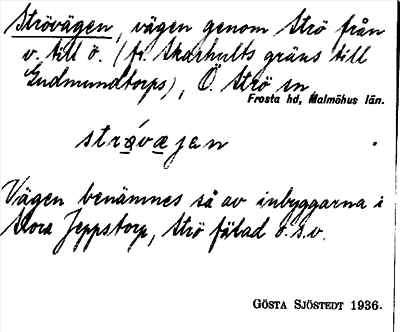 Strövägen, vägen genom Strö från
v. till ö. (fr. Skarhults gräns till
Gudmundtorps), Ö. Strö sn,
Frosta hd, Malmöhus län.
strøvæjen
Vägen benämnes så av inbyggarna i
Stora Jeppstorp, Strö fälad o.s.v.
GÖSTA SJÖSTEDT 1936.